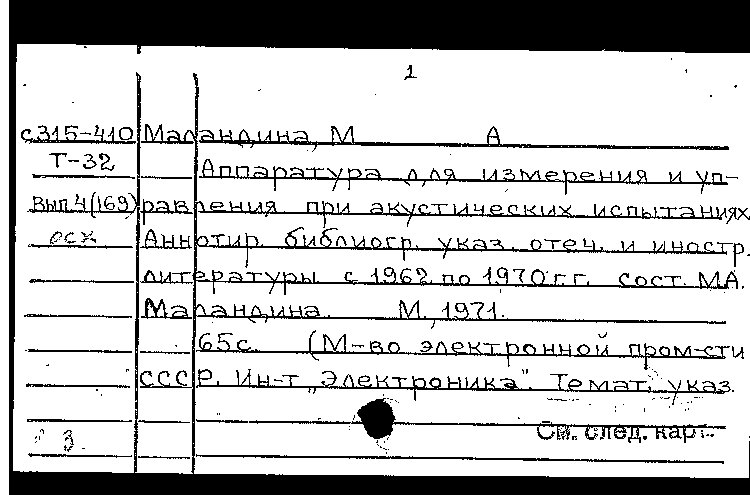 1
с315-410 Маландина, М А
Т-32 Аппаратура для измерения и уп-
вып.4(169) равления при акустических испытаниях
осх Аннотир. библиогр. указ. отеч. и иностр.
литературы с 1962 по 1970 г.г. сост. М.А.
Маландина. М., 1971.
65с. (М-во электронной пром-сти
СССР. Ин-т "Электроника". Темат. указ.
См. след. карт.
3